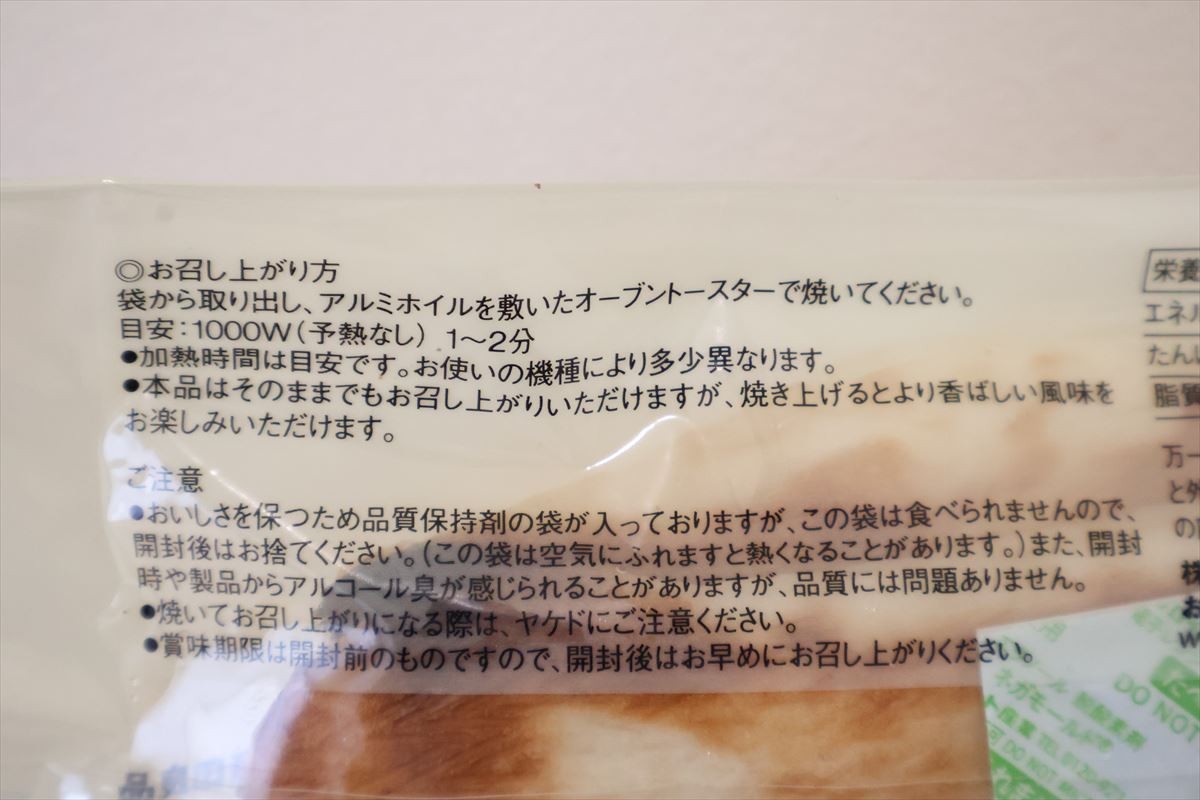 ◎お召し上がり方
袋から取り出し、アルミホイルを敷いたオーブントースターで焼いてください。
目安:1000W(予熱なし) 1〜2分
●加熱時間は目安です。お使いの機種により多少異なります。
●本品はそのままでもお召し上がりいただけますが、焼き上げるとより香ばしい風味を
お楽しみいただけます。
ご注意
●おいしさを保つため品質保持剤の袋が入っておりますが、この袋は食べられませんので、
開封後はお捨てください。(この袋は空気にふれますと熱くなることがあります。)また、開封
時や製品からアルコール臭が感じられることがありますが、品質には問題ありません。
●焼いてお召し上がりになる際は、ヤケドにご注意ください。
●賞味期限は開封前のものですので、開封後はお早めにお召し上がりください。
栄養
エネル
たんぱ
脂質
万一
と外
の
株
お
W
脱酸素剤
ネガモールド
DO NOT
産業 TEL
DO NOT